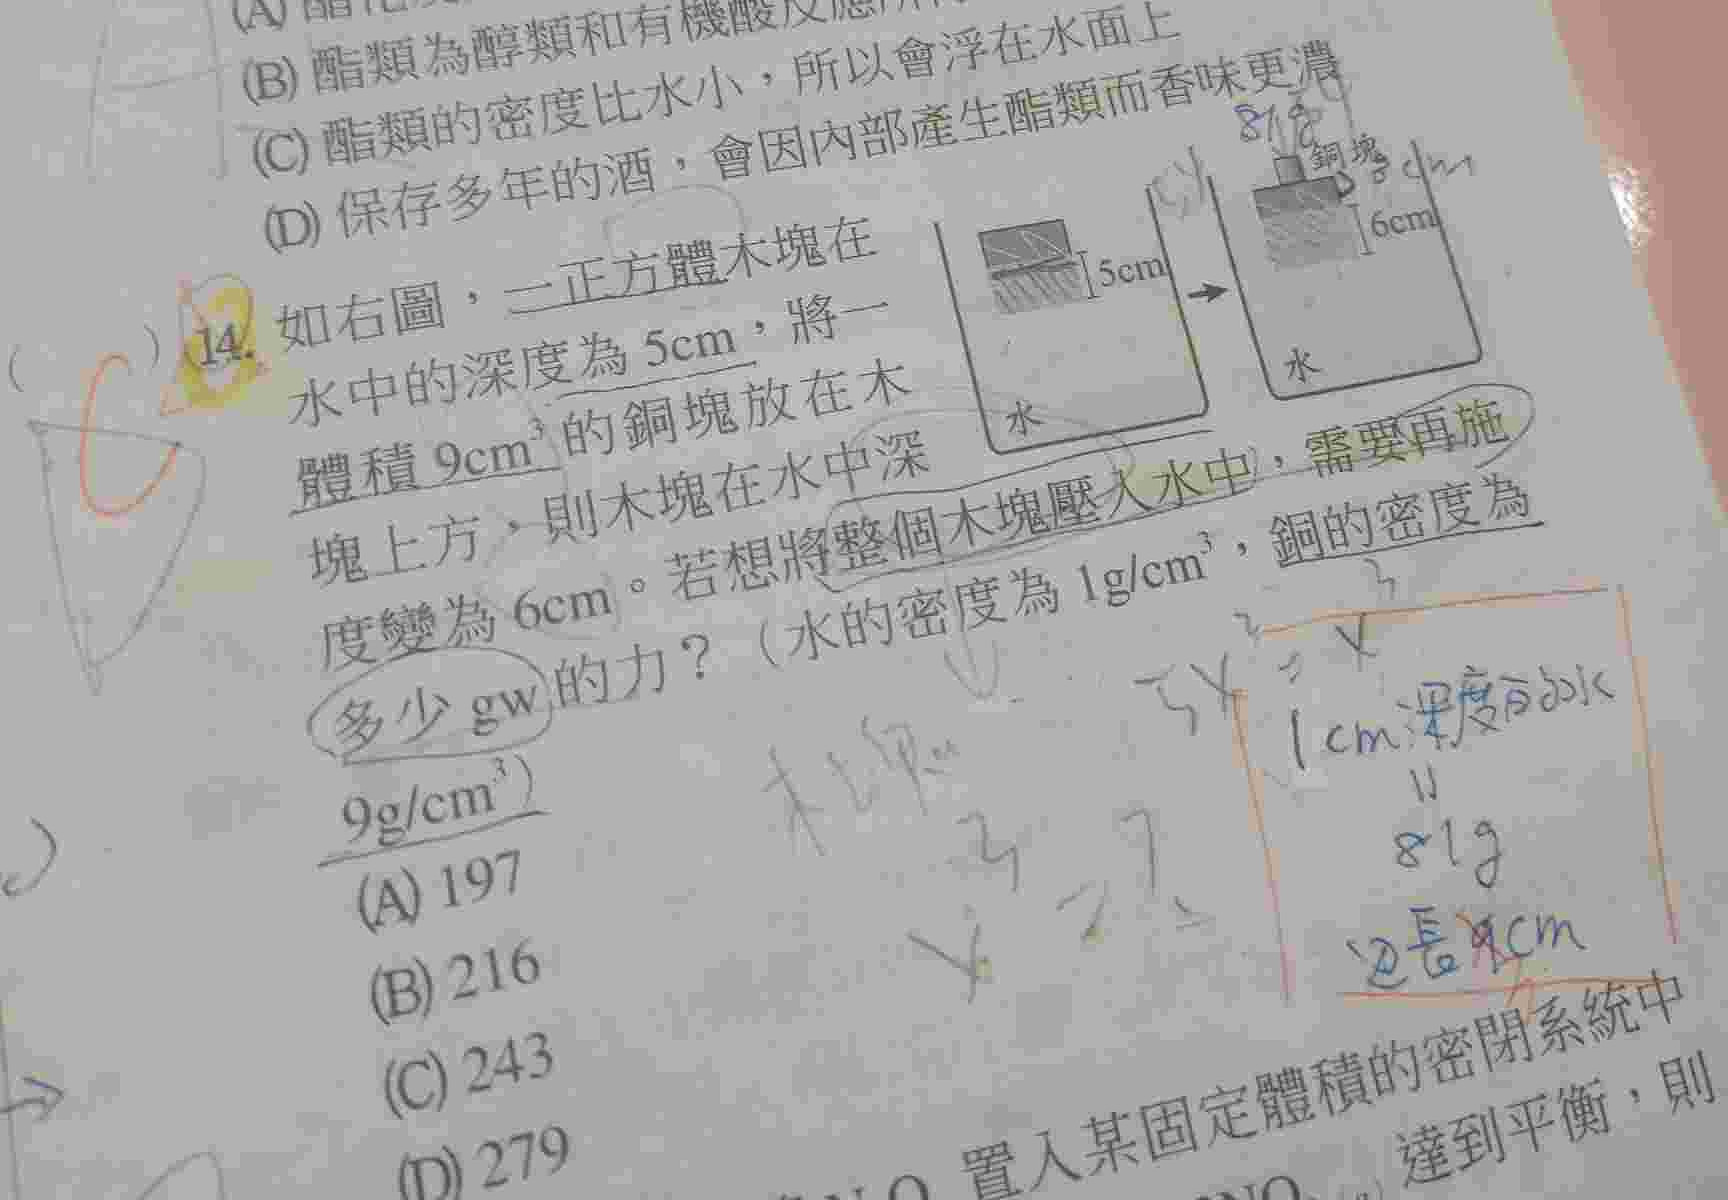 (B) 酯類為醇類和有機酸反應所
(C) 酯類的密度比水小，所以會浮在水面上
(D) 保存多年的酒，會因內部產生酯類而香味更濃
81g
銅塊
cm
6cm
5cm
水
水
14. 如右圖，一正方體木塊在
水中的深度為 5cm，將一
體積 9cm³ 的銅塊放在木
塊上方，則木塊在水中深
度變為 6cm。若想將整個木塊壓入水中，需要再施
多少 gw 的力？（水的密度為 1g/cm³，銅的密度為
9g/cm³）
(A) 197
(B) 216
(C) 243
(D) 279
C
1cm深度的水
81g
邊長 9cm
置入某固定體積的密閉系統中
達到平衡，則